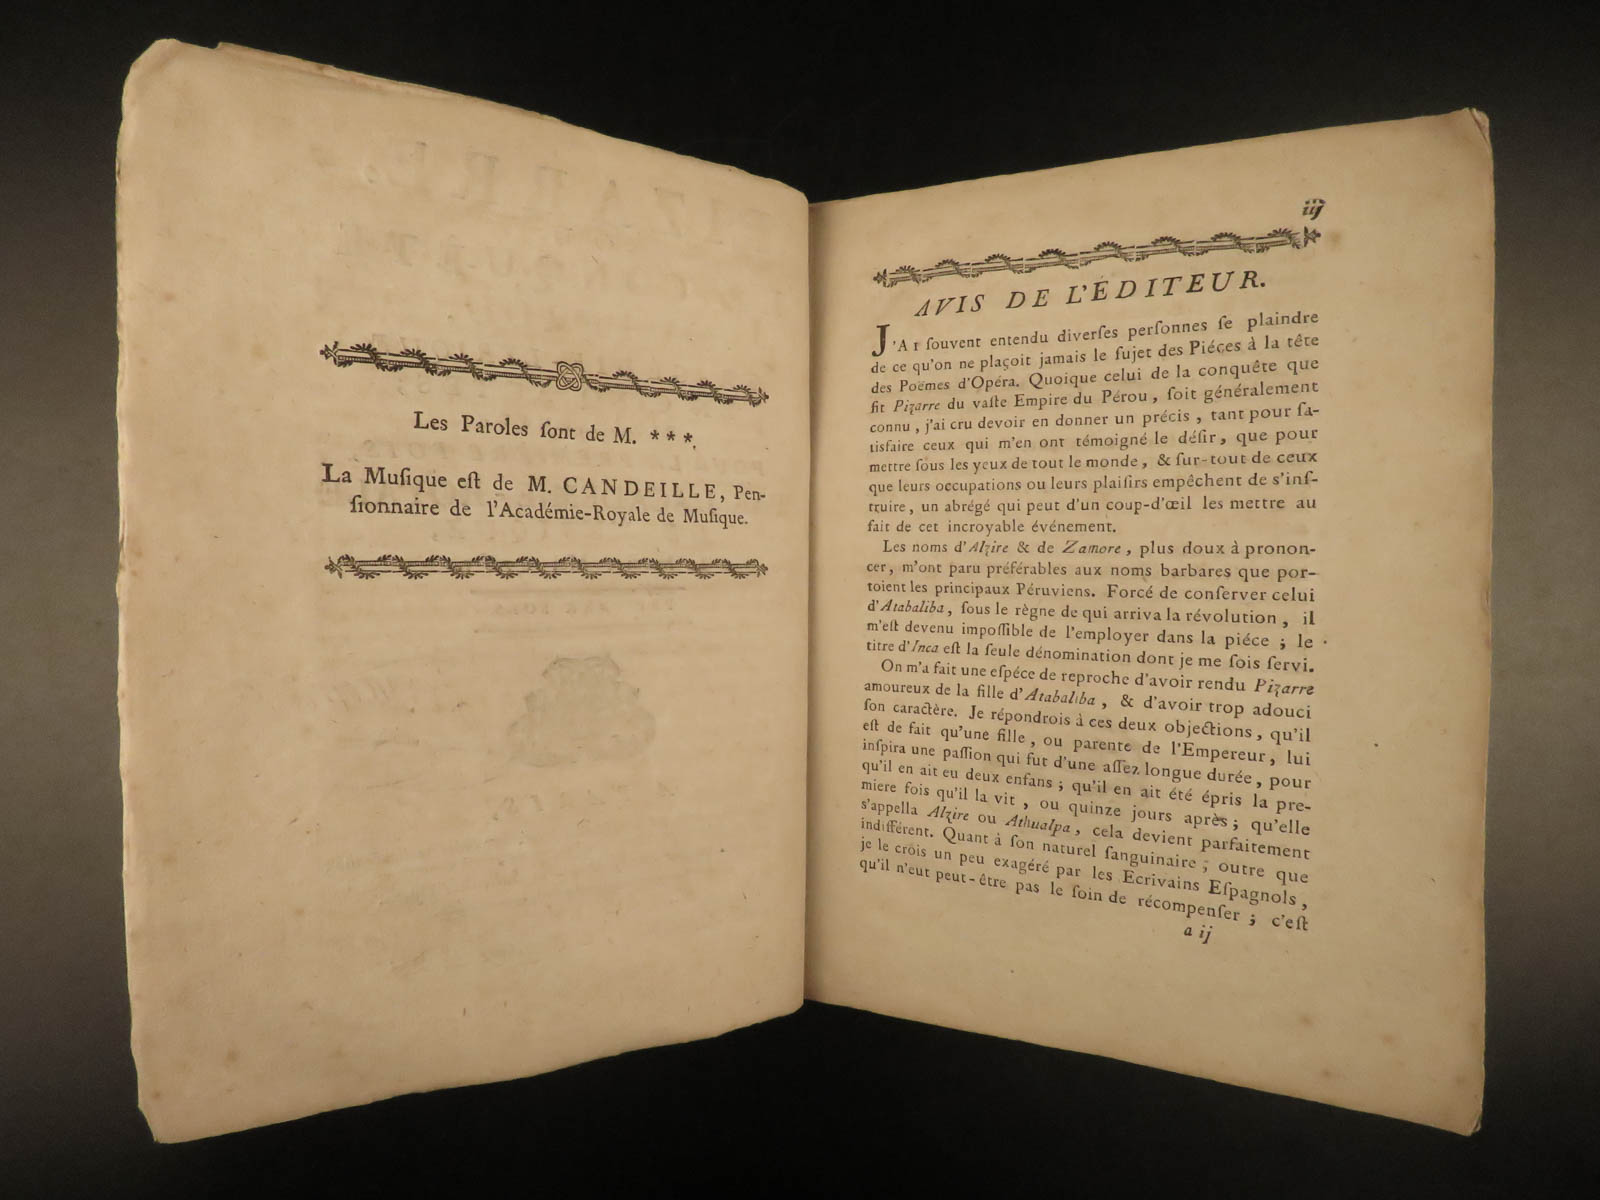 Les Paroles ſont de M. ***.
La Muſique eſt de M. CANDEILLE, Pen-
ſionnaire de l'Académie-Royale de Muſique.
iij
AVIS DE L'ÉDITEUR.
J'AI ſouvent entendu diverſes perſonnes ſe plaindre
de ce qu'on ne plaçoit jamais le ſujet des Piéces à la tête
des Poëmes d'Opéra. Quoique celui de la conquête que
fit Pizarre du vaſte Empire du Pérou, ſoit généralement
connu, j'ai cru devoir en donner un précis, tant pour ſa-
tisfaire ceux qui m'en ont témoigné le déſir, que pour
mettre ſous les yeux de tout le monde, & ſur-tout de ceux
que leurs occupations ou leurs plaiſirs empêchent de s'inſ-
truire, un abrégé qui peut d'un coup-d'œil les mettre au
fait de cet incroyable événement.
Les noms d'Alzire & de Zamore, plus doux à pronon-
cer, m'ont paru préférables aux noms barbares que por-
toient les principaux Péruviens. Forcé de conſerver celui
d'Atabaliba, ſous le règne de qui arriva la révolution, il
m'eſt devenu impoſſible de l'employer dans la piéce; le
titre d'Inca eſt la ſeule dénomination dont je me ſois ſervi.
On m'a fait une eſpéce de reproche d'avoir rendu Pizarre
amoureux de la fille d'Atabaliba, & d'avoir trop adouci
ſon caractère. Je répondrois à ces deux objections, qu'il
eſt de fait qu'une fille, ou parente de l'Empereur, lui
inſpira une paſſion qui fut d'une aſſez longue durée, pour
qu'il en ait eu deux enfans; qu'il en ait été épris la pre-
miere fois qu'il la vit, ou quinze jours après; qu'elle
s'appella Alzire ou Athualpa, cela devient parfaitement
indifférent. Quant à ſon naturel ſanguinaire, outre que
je le crois un peu exagéré par les Ecrivains Eſpagnols,
qu'il n'eut peut-être pas le ſoin de récompenſer; c'eſt
a ij